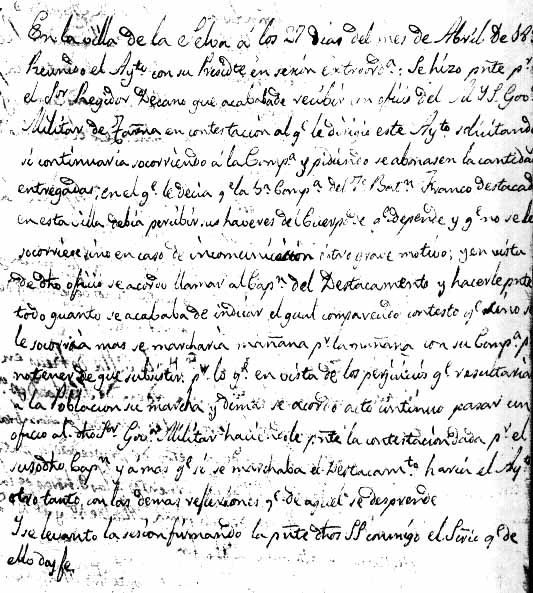 En la villa de la Selva á los 27 dias del mes de Abril de 18
Reunido el Ayto con su Presidte en sesión Extraorda: Se hizo pnte pr
el Sor Regidor Decano que acababa de recibir un oficio del M Y S Gor
Militar de en contestacion al qe le dirigio este Ayto solicitando
si continuaria socorriendo á la Compa y pidiendo se abonasen la cantidad
entregadas, en el qe le decia qe la 5a Compa del 7o Batn Franco destacad
en esta villa debia percibir sus haveres del Cuerpo de qe depende y qe no se le
socorriese sino en caso de incomunicación ú otro grave motivo; y en vista
de dho oficio se acordó llamar al Capn del Destacamento y hacerle pnte
todo quanto se acababa de indicar el qual comparecido contestó qe sino se
le socorria mas se marcharia mañana pr la mañana con su Compa p
no tener de que subsistir, pr lo qe en vista de los perjuicios qe resultaria
á la Poblacion su marcha y demas se acordó acto continuo pasar un
oficio al dho Sor Gor Militar haciendole pnte la contestacion dada pr el
susodho Capn y á mas qe si se marchaba el Destacamto haria el Ayto
otro tanto, con las demas reflexiones qe de aquel se desprende
Y se levanto la sesion firmando la pnte dhos SS conmigo el Srio qe de
ello doy fe.